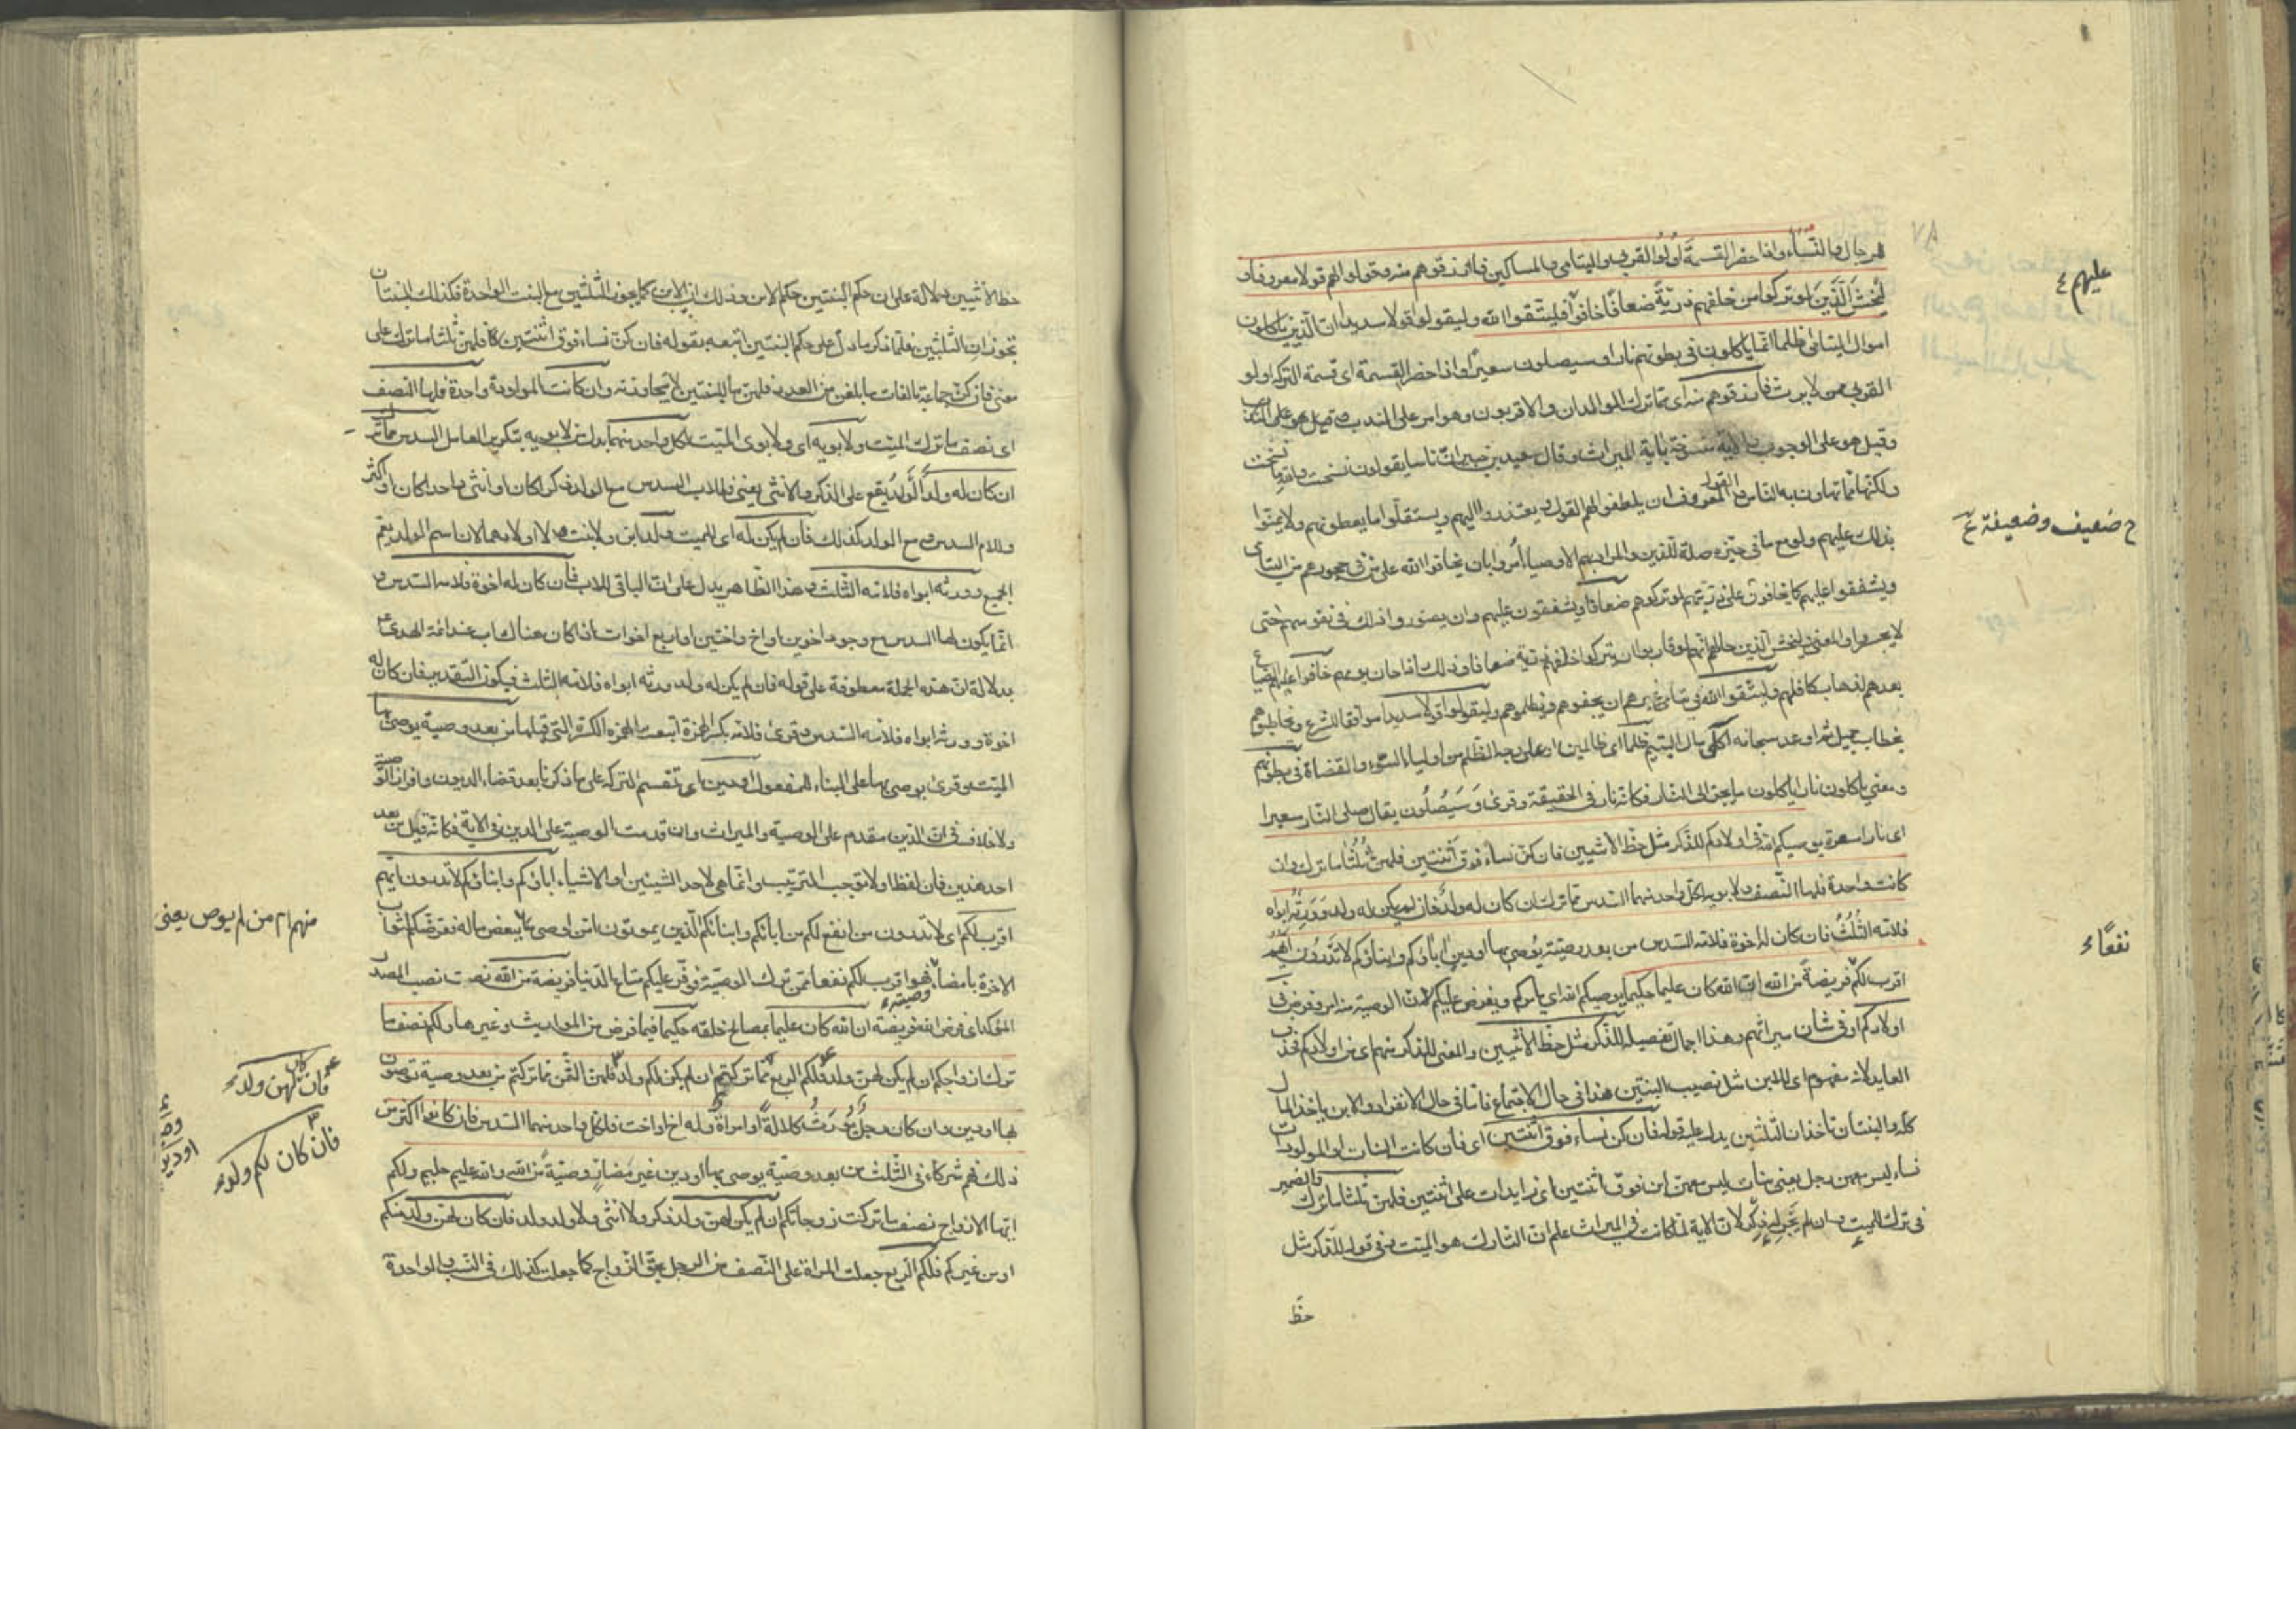 للرجال والنساء واذا حضر القسمة اولوا القربى واليتامى والمساكين فارزقوهم منه وقولوا لهم قولا معروفا و
ليخش الذين لو تركوا من خلفهم ذرية ضعافا خافوا فليتقوا الله وليقولوا قولا سديدا ان الذين ياكلون
اموال اليتامى ظلما انما ياكلون فى بطونهم نارا وسيصلون سعيرا واذا حضر القسمة اى قسمة التركة اولو
القربى ممن لا يرث فارزقوهم منه اى مما ترك الوالدان والاقربون وهو امر على الندب
وقيل هو على الوجوب والاية منسوخة باية الميراث وقال سعيد بن جبير ان ناسا يقولون نسخت والله ما نسخت
ولكنها مما تهاون به الناس والقول المعروف ان يلطفوا لهم القول ويعتذروا اليهم ويستقلوا ما يعطونهم ولا يمنوا
بذلك عليهم ولو مع ما فى حيزه صلة للذين والمراد بهم الاوصياء امروا بان يخافوا الله على من فى حجورهم من اليتامى
ويشفقوا عليهم كما يخافون على ذريتهم لو تركوهم ضعافا ويشفقون عليهم وان يصوروا ذلك فى نفوسهم حتى
لا يجسروا والمعنى وليخش الذين حالهم انهم لو قاربوا ان يتركوا خلفهم ذرية ضعافا وذلك اذا حان يومهم خافوا عليهم الضياع
بعدهم لذهاب كافلهم فليتقوا الله فى يتامى غيرهم ان يجفوهم ويظلموهم وليقولوا قولا سديدا موافقا للشرع ويخاطبوهم
بخطاب جميل ثم اوعد سبحانه آكلى مال اليتيم ظلما اى ظالمين او على وجه الظلم من اولياء السوء والقضاة فى بطونهم
ومعنى ياكلون نارا ياكلون ما يجر الى النار فكانه نار فى الحقيقة وقرئ وسيصلون يقال صلى النار سعيرا
اى نارا مسعرة يوصيكم الله فى اولادكم للذكر مثل حظ الانثيين فان كن نساء فوق اثنتين فلهن ثلثا ما ترك وان
كانت واحدة فلها النصف ولابويه لكل واحد منهما السدس مما ترك ان كان له ولد فان لم يكن له ولد وورثه ابواه
فلامه الثلث فان كان له اخوة فلامه السدس من بعد وصية يوصى بها او دين اباؤكم وابناؤكم لا تدرون ايهم
اقرب لكم فريضة من الله ان الله كان عليما حكيما يوصيكم الله اى يامركم ويفرض عليكم لان الوصية منه امر وفرض فى
اولادكم اى فى شأن ميراثهم وهذا اجمال تفصيله للذكر مثل حظ الانثيين والمعنى للذكر منهم اى من اولادكم فحذف
العايد لانه مفهوم اى للابن مثل نصيب البنتين هذا فى حال الاجتماع فاما فى حال الانفراد فالابن ياخذ المال
كله والبنتان تاخذان الثلثين يدل عليه قوله فان كن نساء فوق اثنتين اى فان كانت البنات او المولودات
نساء ليس معهن رجل يعنى بنات ليس معهن ابن فوق اثنتين اى زايدات على اثنتين فلهن ثلثا ما ترك والضمير
فى ترك للميت وان لم يجر له ذكر لان الاية لما كانت فى الميراث علم ان التارك هو الميت وفى قوله للذكر مثل
حظ
عليهم ع
ضعيف وضعيفة
نفعا
حظ الانثيين دلالة على ان حكم البنتين حكم الابن وذلك ان الابن كما يحوز الثلثين مع البنت الواحدة فكذلك البنتان
تحوزان الثلثين فلما ذكر ما دل على حكم البنتين اتبعه بقوله فان كن نساء فوق اثنتين فلهن ثلثا ما ترك على
معنى فان كن جماعة بالغات ما بلغن من العدد فلهن ما للبنتين لا يتجاوزنه وان كانت المولودة واحدة فلها النصف
اى نصف ما ترك الميت ولابويه اى ولابوى الميت لكل واحد منهما بدل من لابويه بتكرير العامل السدس مما ترك
ان كان له ولد الولد يقع على الذكر والانثى يعنى فللاب السدس مع الولد ذكرا كان او انثى واحدا كان او اكثر
وللام السدس مع الولد كذلك فان لم يكن له اى للميت ولد ابن ولا بنت ولا اولادهما لان اسم الولد يعم
الجميع وورثه ابواه فلامه الثلث وهذا الظاهر يدل على ان الباقى للاب فان كان له اخوة فلامه السدس و
انما يكون لها السدس مع وجود اخوين او اخ واختين او اربع اخوات اذا كان هناك اب عند ائمة الهدى ع
بدلالة ان هذه الجملة معطوفة على قوله فان لم يكن له ولد وورثه ابواه فلامه الثلث فيكون التقدير فان كان له
اخوة وورثه ابواه فلامه السدس وقرئ فلامه بكسر الهمزة اتبعت الهمزة الكسرة التى قبلها من بعد وصية يوصى بها
الميت وقرئ يوصى بها على البناء للمفعول او دين اى تقسم التركة على ما ذكرنا بعد قضاء الديون وافراز الوصية
ولا خلاف فى ان الدين مقدم على الوصية والميراث وان قدمت الوصية على الدين فى الاية فكانه قيل من بعد
احد هذين فان لفظ او لا توجب الترتيب وانما هى لاحد الشيئين او الاشياء اباؤكم وابناؤكم لا تدرون ايهم
اقرب لكم اى لا تدرون من انفع لكم من ابائكم وابنائكم الذين يموتون امن اوصى ببعض ماله فعرضكم لثواب
الاخرة بامضاء وصيته فهو اقرب لكم نفعا ممن ترك الوصية فوفر عليكم متاع الدنيا فريضة من الله نصبت نصب المصدر
المؤكد اى فرض الله فريضة ان الله كان عليما بمصالح خلقه حكيما فيما فرض من المواريث وغيرها ولكم نصف ما
ترك ازواجكم ان لم يكن لهن ولد فلكم الربع مما تركتم ان لم يكن لكم ولد فلهن الثمن مما تركتم من بعد وصية توصون
بها او دين وان كان رجل يورث كلالة او امراة وله اخ او اخت فلكل واحد منهما السدس فان كانوا اكثر من
ذلك فهم شركاء فى الثلث من بعد وصية يوصى بها او دين غير مضار وصية من الله والله عليم حليم ولكم
ايها الازواج نصف ما تركت زوجاتكم ان لم يكن لهن ولد ذكر ولا انثى ولا ولد ولد فان كان لهن ولد منكم
او من غيركم فلكم الربع جعلت المراة على النصف من الرجل بحق الزواج كما جعلت كذلك فى النسب والواحدة
منهم ام من لم يوص يعنى
فان كان لهن ولد
فان كان لكم ولد